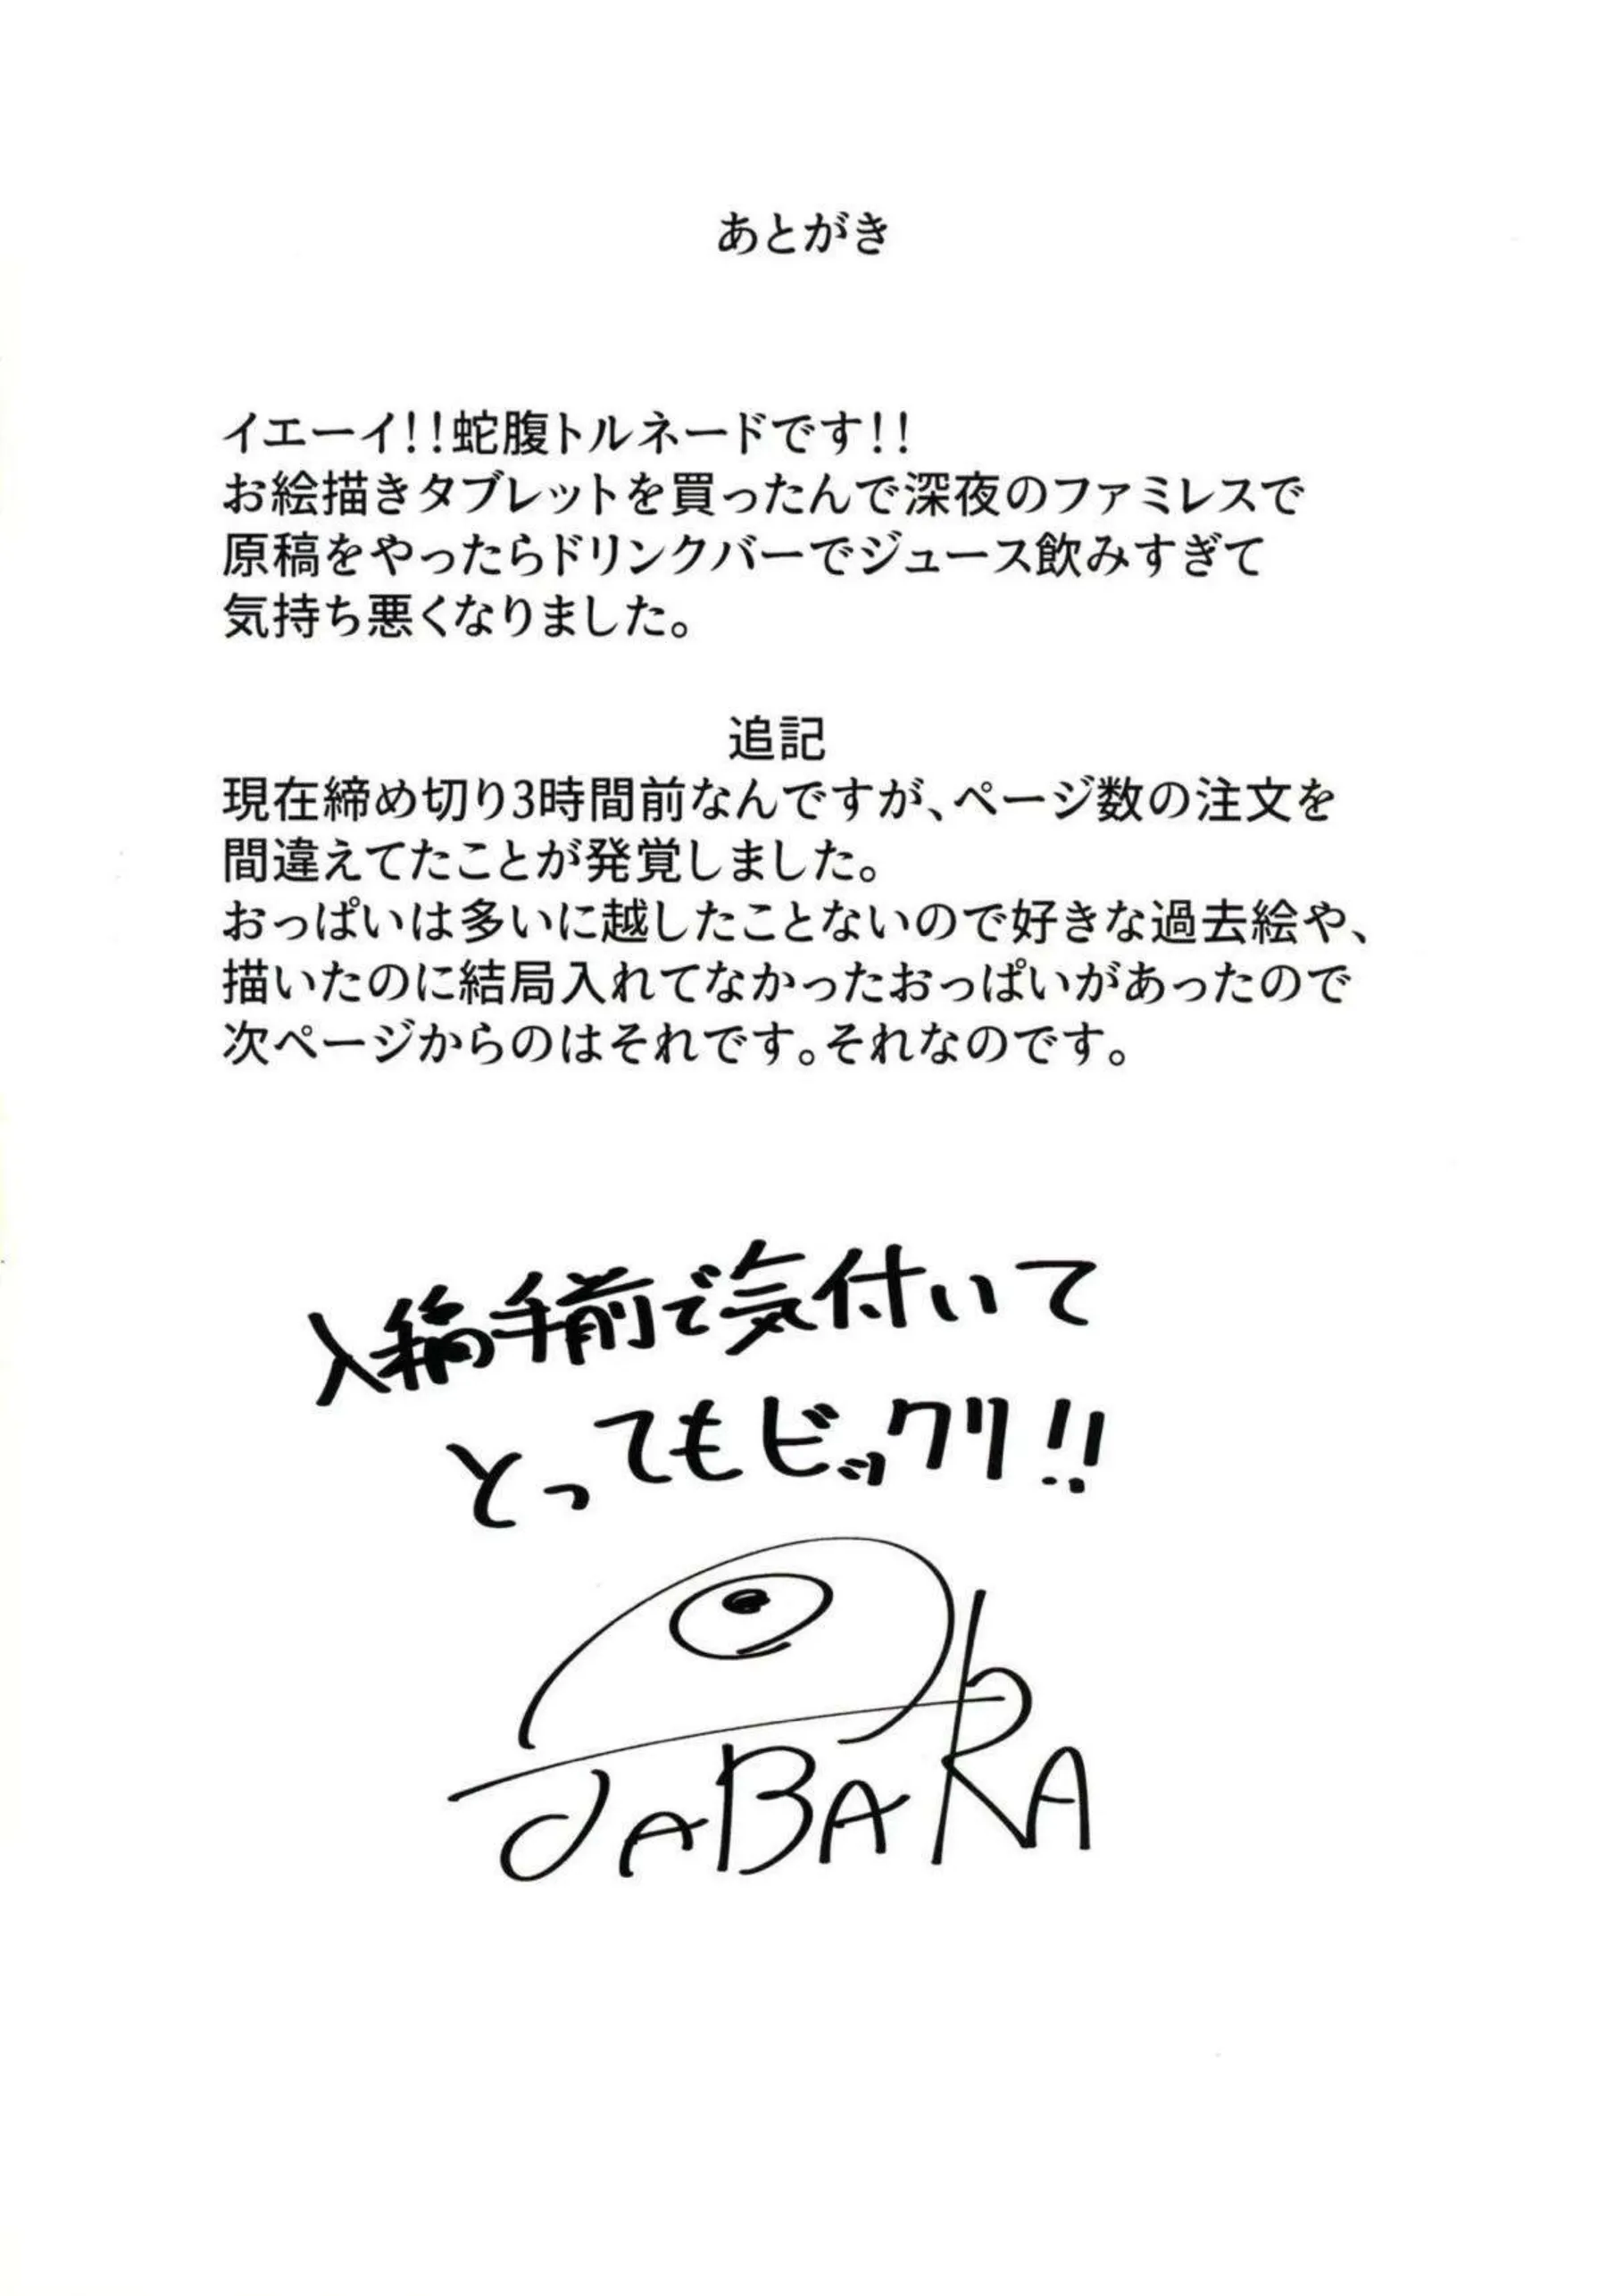 あとがき
イエーイ!!蛇腹トルネードです!!
お絵描きタブレットを買ったんで深夜のファミレスで
原稿をやったらドリンクバーでジュース飲みすぎて
気持ち悪くなりました。
追記
現在締め切り3時間前なんですが、ページ数の注文を
間違えてたことが発覚しました。
おっぱいは多いに越したことないので好きな過去絵や、
描いたのに結局入れてなかったおっぱいがあったので
次ページからのはそれです。それなのです。
入稿手前で気付いて
とってもビックリ!!
JABARA